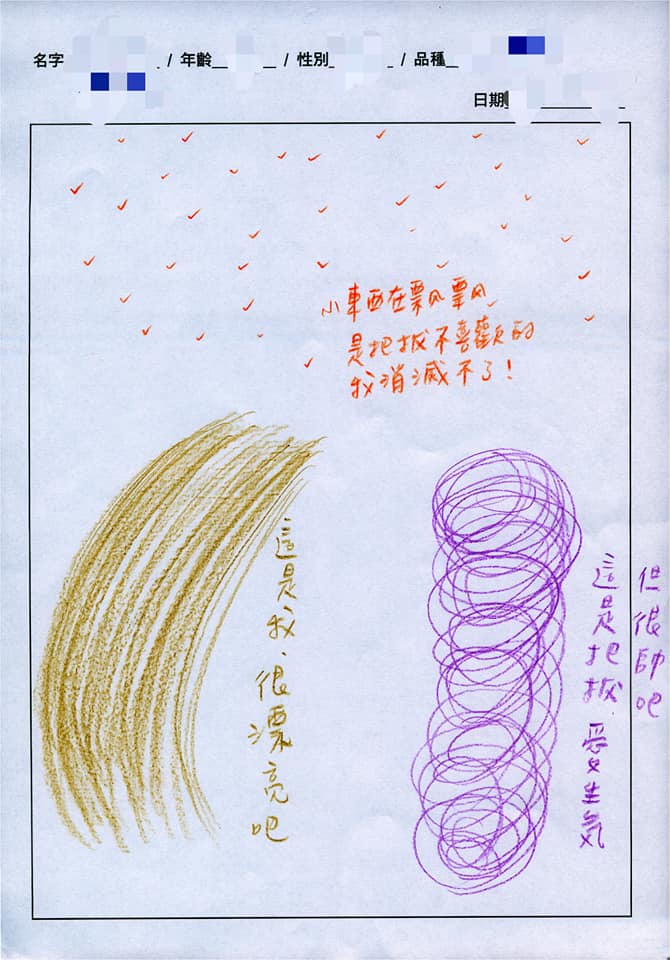 名字 / 年齡 / 性別 / 品種
日期
小東西在飄飄
是把拔不喜歡的
我消滅不了!
這是我、很漂亮吧
這是把拔 愛生氣
但很帥吧